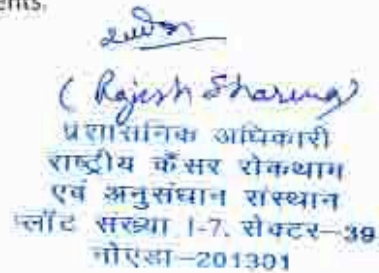 ents.
( Rajesh Sharma)
प्रशासनिक अधिकारी
राष्ट्रीय कैंसर रोकथाम
एवं अनुसंधान संस्थान
प्लॉट संख्या I-7, सेक्टर-39
नोएडा-201301